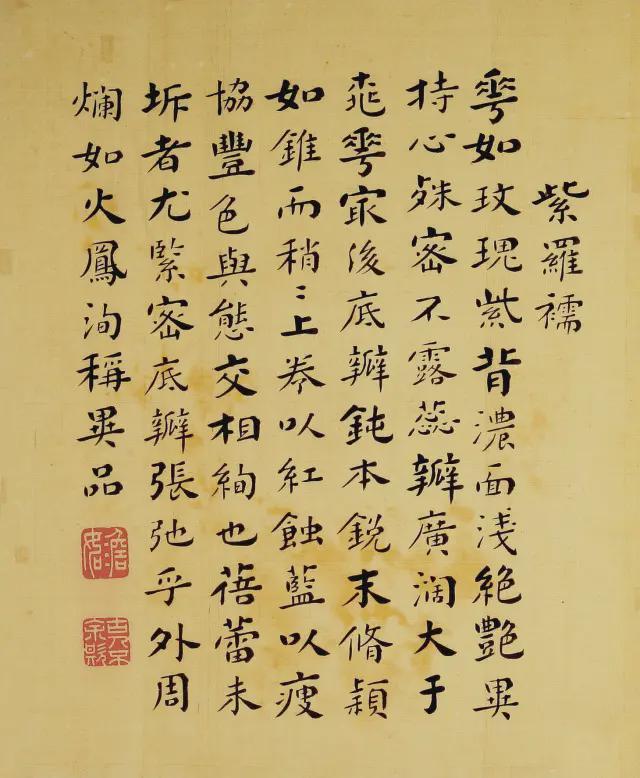 紫羅襦
𠌶如玫瑰紫背濃面淺絕艷異
持心殊密不露蕊瓣廣濶大于
𠌶㝡後底瓣鈍本銳末脩穎
如錐而稍〻上卷以紅蝕藍以瘦
協豐色與態交相絢也蓓蕾未
坼者尤緊密底瓣張弛乎外周
爛如火鳳洵稱異品